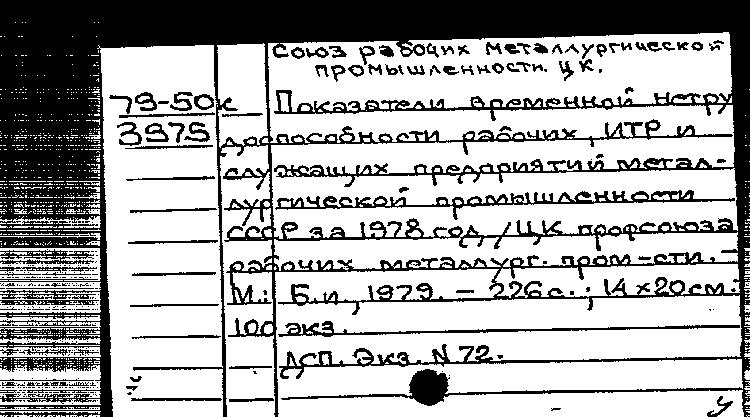 Союз рабочих металлургической
промышленности. ЦК.
79-50к Показатели временной нетру
3975 доспособности рабочих, ИТР и
служащих предприятий метал-
лургической промышленности
СССР за 1978 год, /ЦК профсоюза
рабочих металлург. пром-сти. –
М.: Б.и, 1979. – 226 с.; 14×20 см.
100 экз.
ДСП. Экз. N 72.